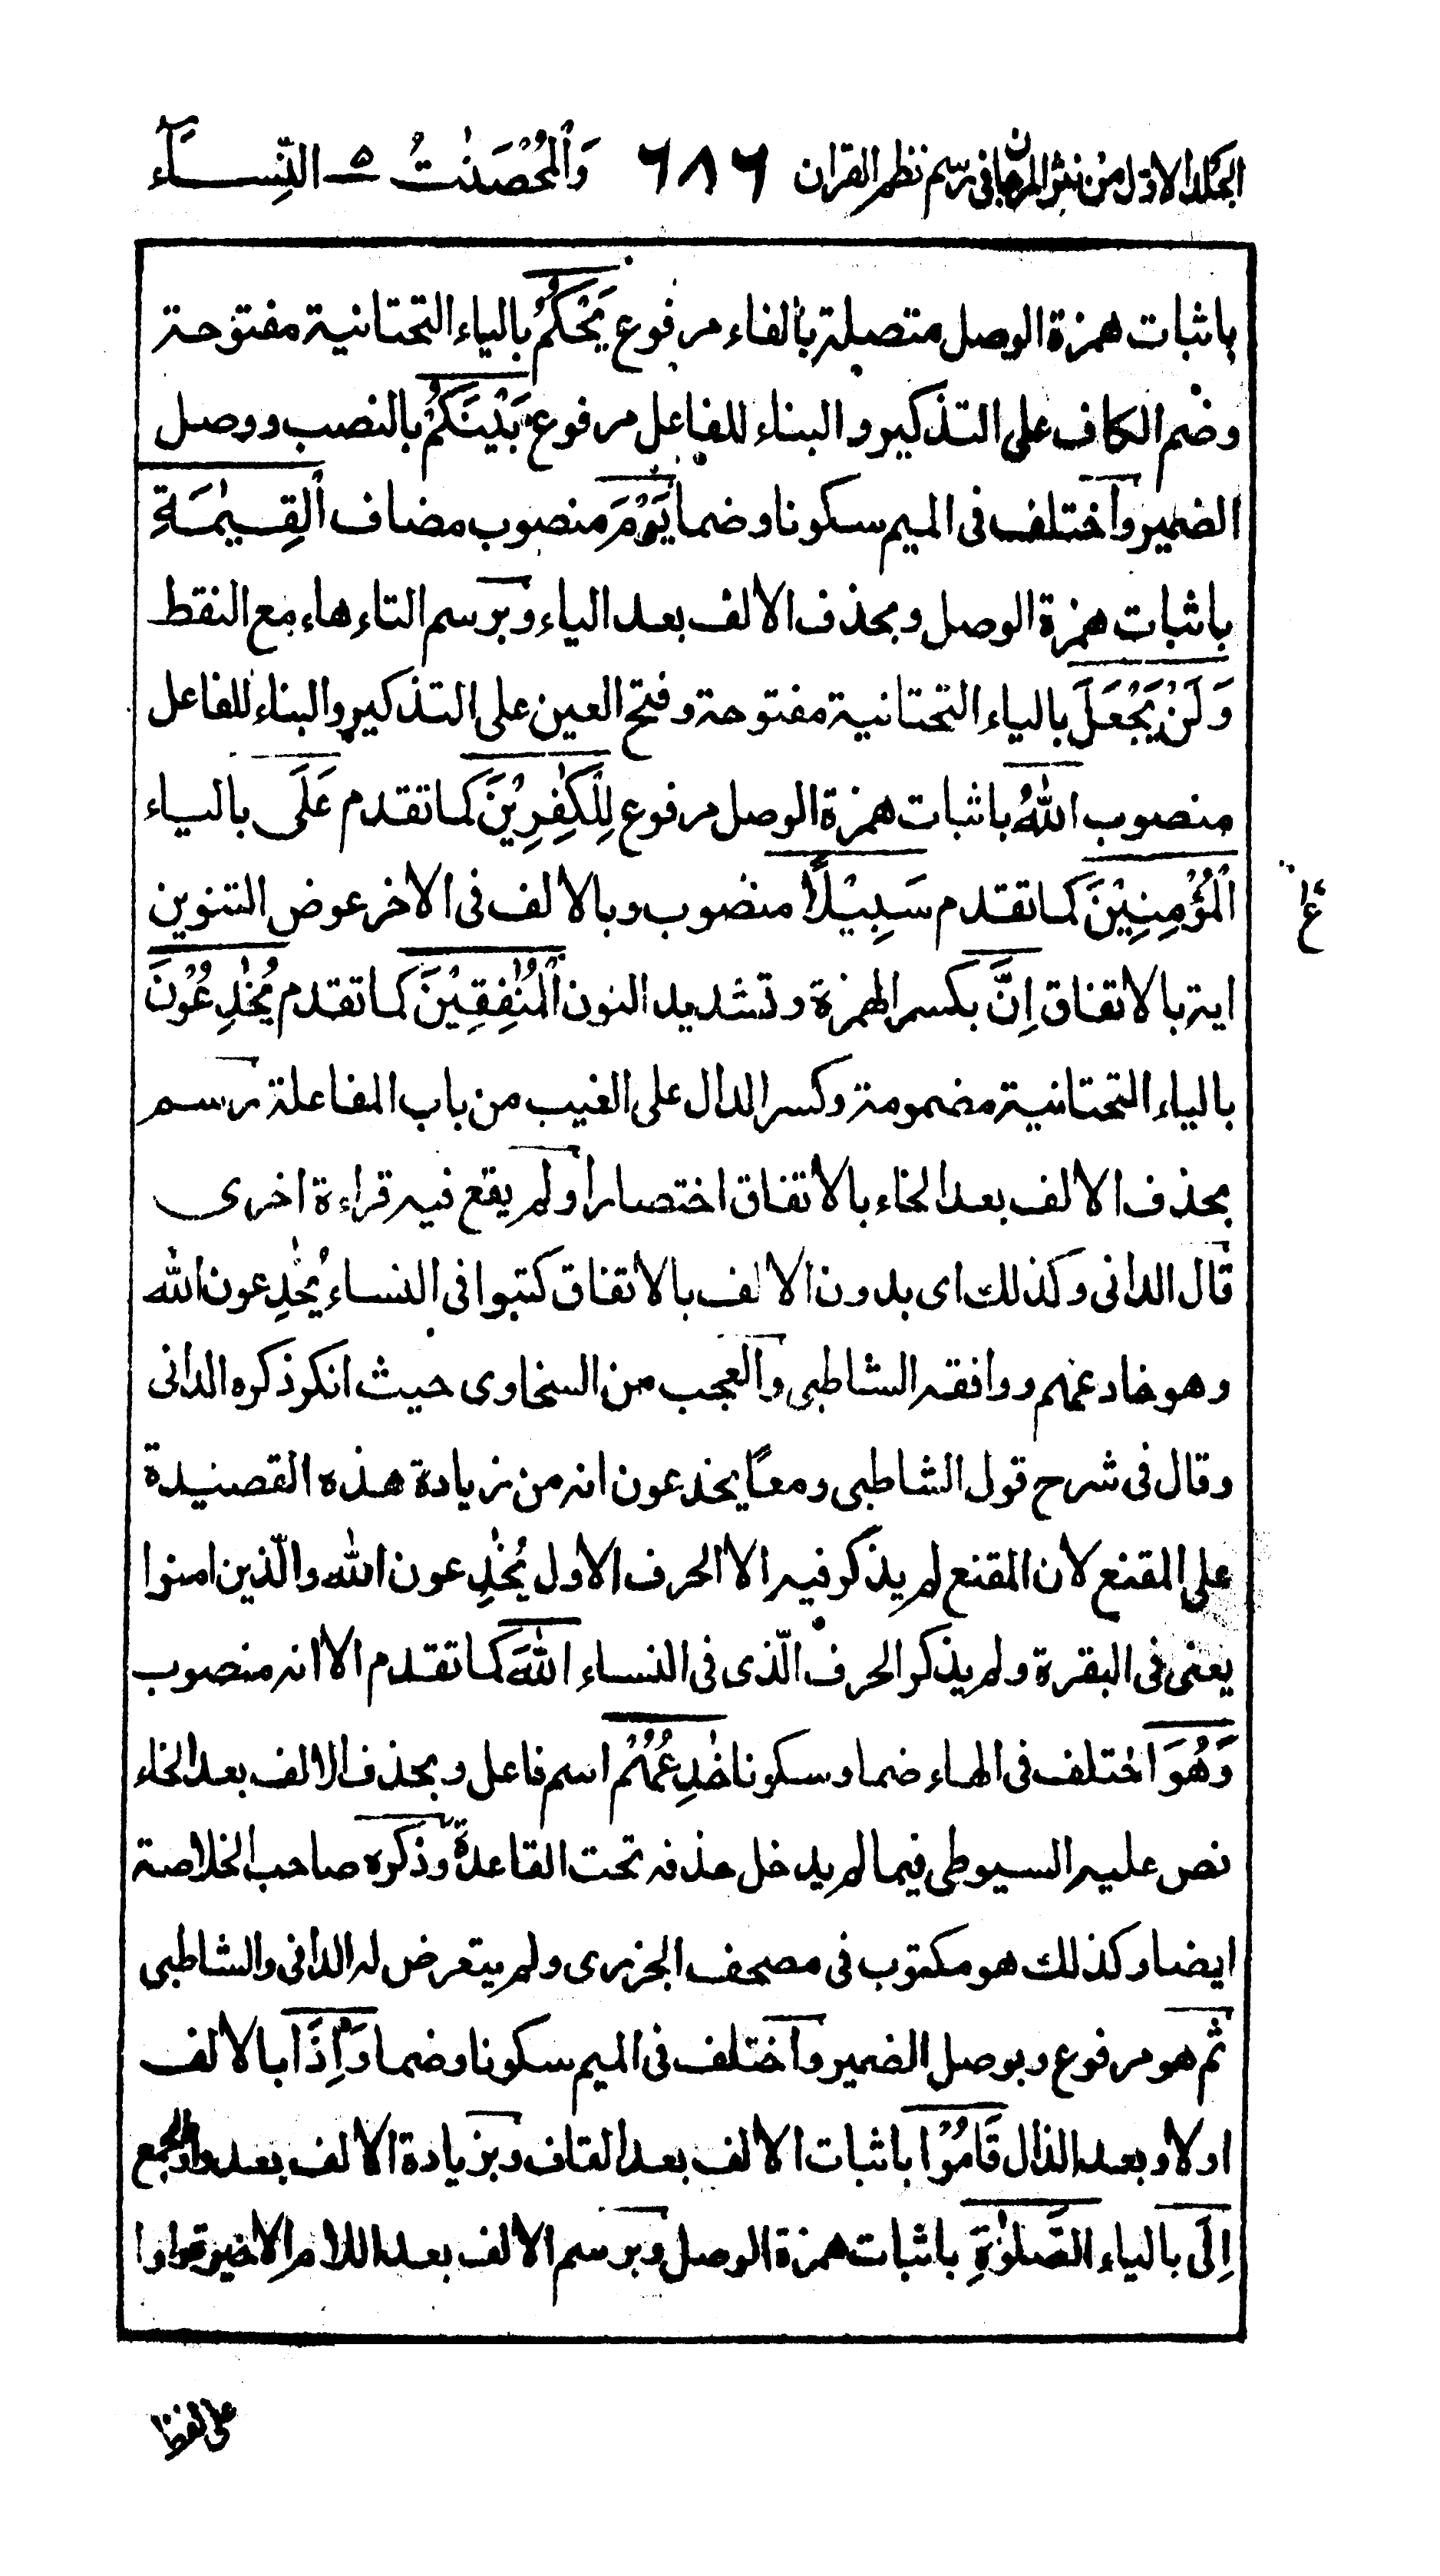 الجلد الاول من نثر المرجان فی رسم نظم القران ٦٨٦ وَالْمُحْصَنٰتُ ٥ النِّسَآء
باثبات همزة الوصل متصلة بالفاء مرفوع يَحْكُمُ بالياء التحتانية مفتوحة
وضم الكاف على التذكير والبناء للفاعل مرفوع بَيْنَكُمْ بالنصب ووصل
الضمير واختلف فى الميم سكونا وضما يَوْمَ منصوب مضاف الْقِيٰمَةِ
باثبات همزة الوصل وبحذف الالف بعد الياء وبرسم التاء هاء مع النقط
وَلَنْ يَجْعَلَ بالياء التحتانية مفتوحة وفتح العين على التذكير والبناء للفاعل
منصوب اللّٰهُ باثبات همزة الوصل مرفوع لِلْكٰفِرِيْنَ كما تقدم عَلَى بالياء
الْمُؤْمِنِيْنَ كما تقدم سَبِيْلًا منصوب وبالالف فى الاخر عوض التنوين
ع
اية بالاتفاق اِنَّ بكسر الهمزة وتشديد النون الْمُنٰفِقِيْنَ كما تقدم يُخٰدِعُوْنَ
بالياء التحتانية مضمومة وكسر الدال على الغيب من باب المفاعلة رسم
بحذف الالف بعد الخاء بالاتفاق اختصارا ولم يقع فيه قراءة اخرى
قال الدانى وكذلك اى بدون الالف بالاتفاق كتبوا فى النساء يُخٰدِعون الله
وهو خادعهم ووافقه الشاطبى والعجب من السخاوى حيث انكر ذكره الدانى
وقال فى شرح قول الشاطبى ومعًا يخدعون انه من زيادة هذه القصيدة
على المقنع لان المقنع لم يذكر فيه الا الحرف الاول يُخٰدِعون الله والّذين امنوا
يعنى فى البقرة ولم يذكر الحرف الّذى فى النساء اللّٰهَ كما تقدم الا انه منصوب
وَهُوَ اختلف فى الهاء ضما وسكونا خٰدِعُهُمْ اسم فاعل وبحذف الالف بعد الخاء
نص عليه السيوطى فيما لم يدخل حذفه تحت القاعدة وذكره صاحب الخلاصة
ايضا وكذلك هو مكتوب فى مصحف الجزرى ولم يتعرض له الدانى والشاطبى
ثم هو مرفوع وبوصل الضمير واختلف فى الميم سكونا وضما وَاِذَا بالالف
اولا وبعد الذال قَامُوْا باثبات الالف بعد القاف وبزيادة الالف بعد واو الجمع
اِلَى بالياء الصَّلٰوةِ باثبات همزة الوصل وبرسم الالف بعد اللام الاخير واوا
على لفظ